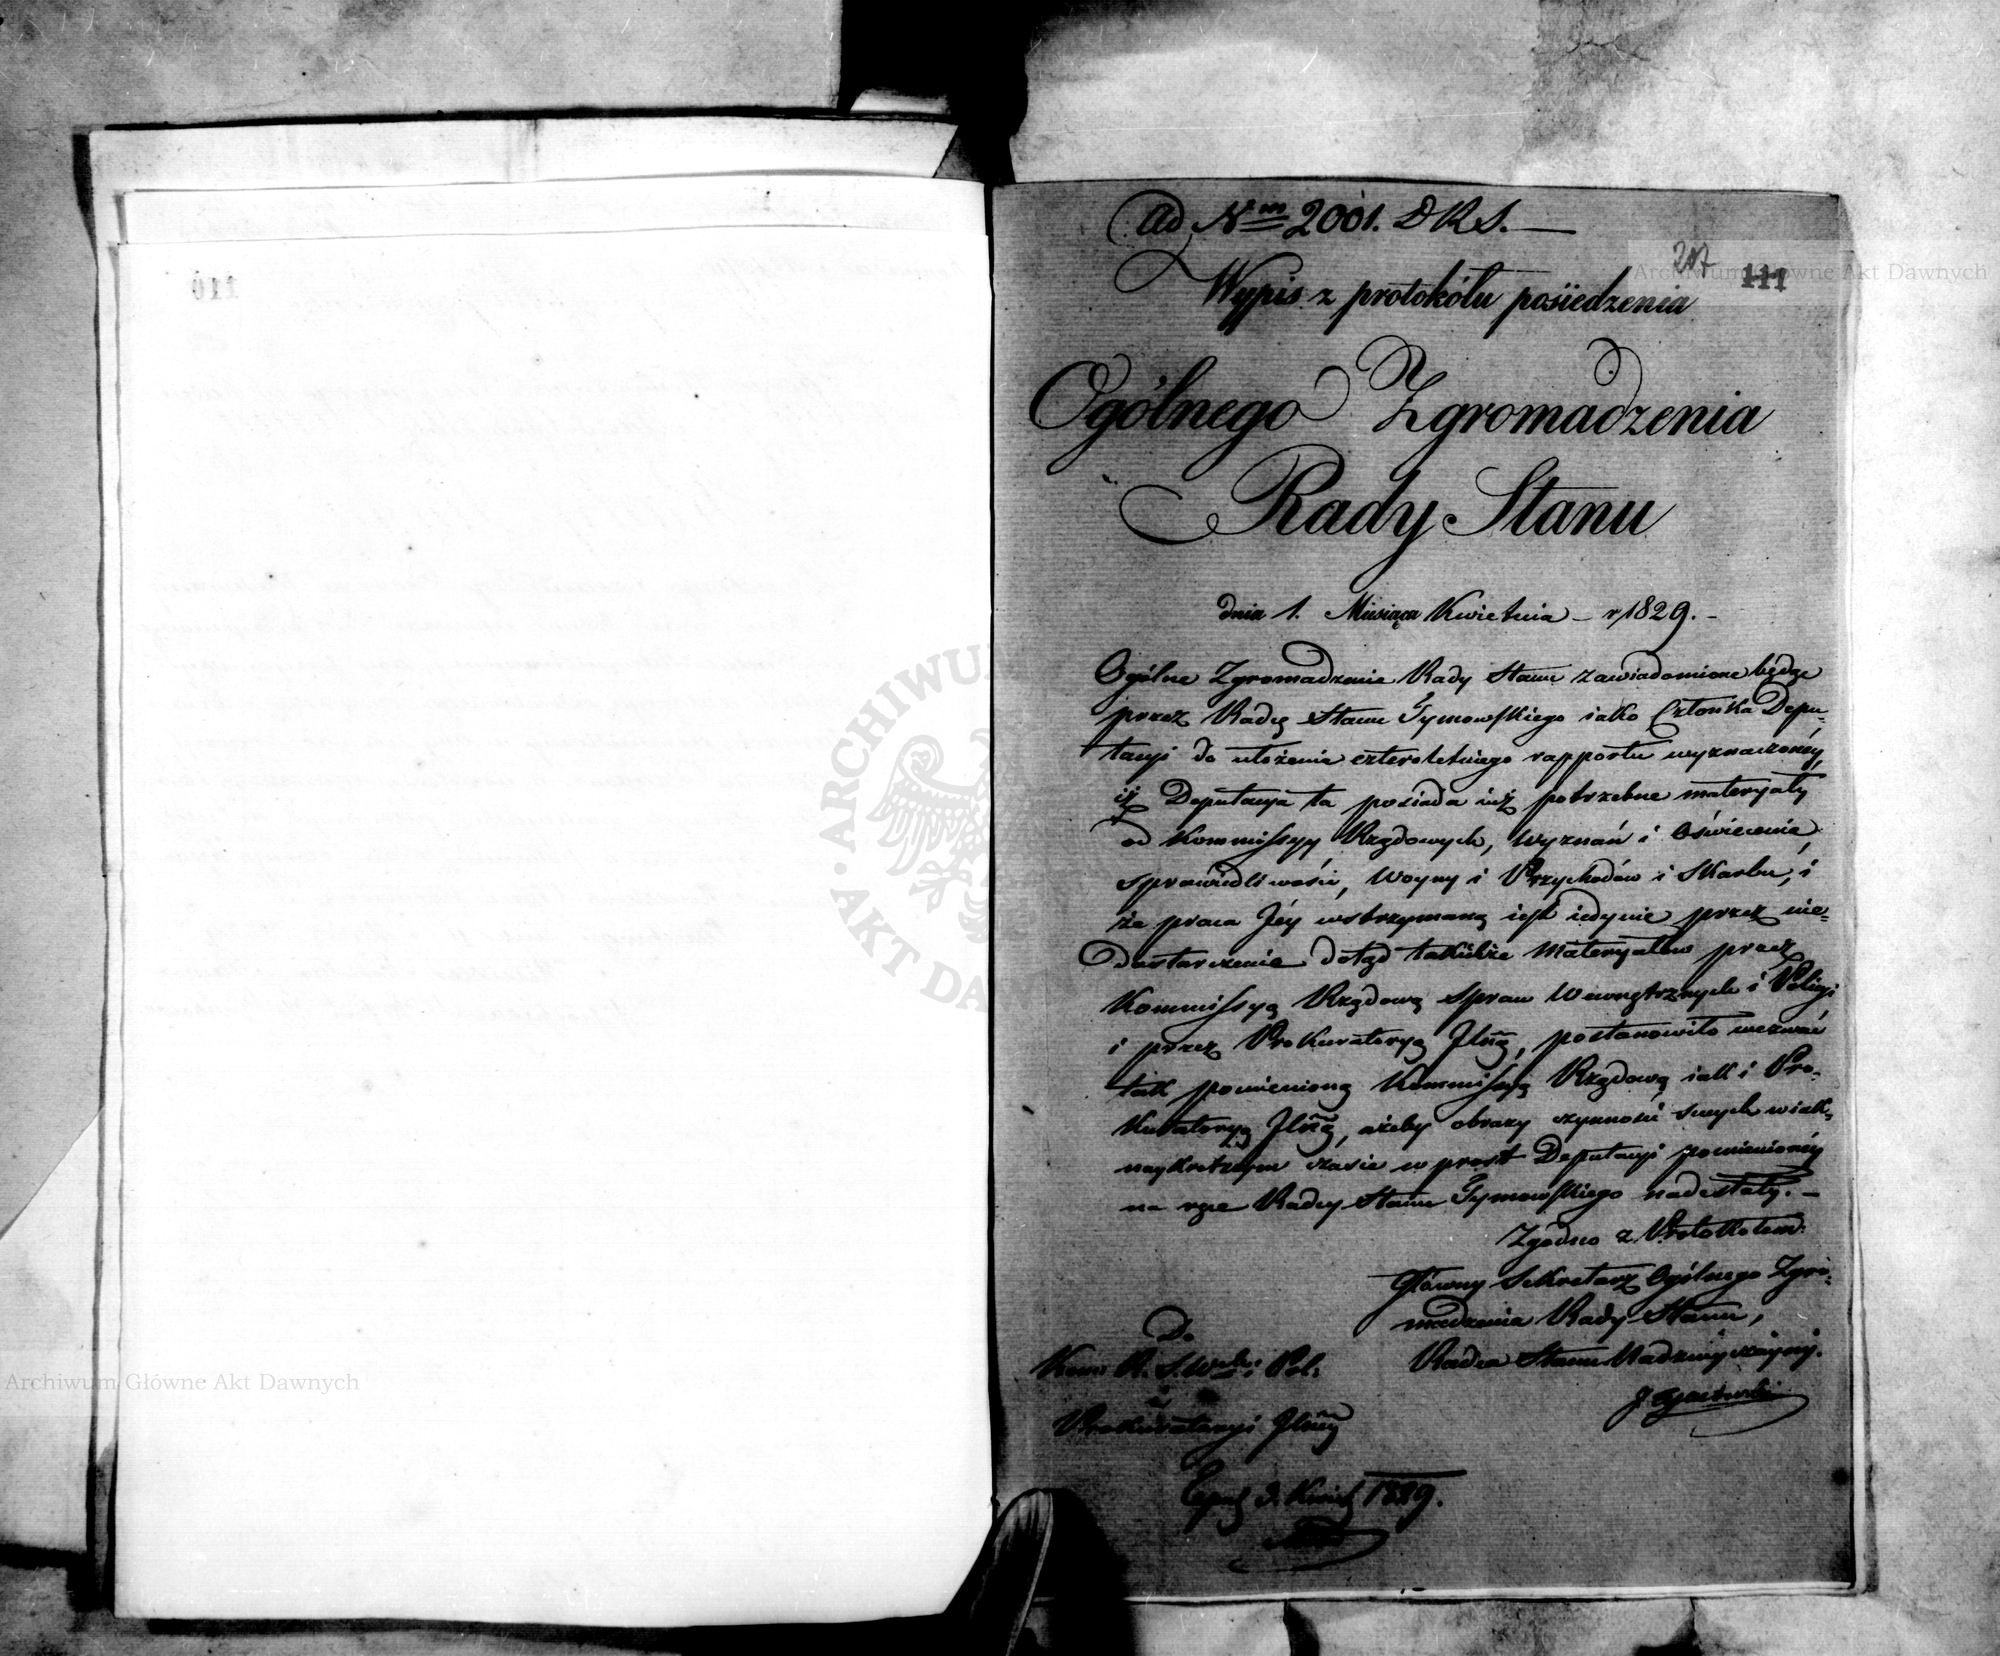 Ad Nm 2001. DKS.
207
111
110
Wypis z protokółu posiedzenia
Ogólnego Zgromadzenia
Rady Stanu
dnia 1. Miesiąca Kwietnia – r 1829. –
Ogólne Zgromadzenie Rady Stanu zawiadomione będąc
przez Radcę Stanu Tymowskiego iako Członka Depu-
tacyi do ułożenia czteroletniego rapportu wyznaczonéy,
iż Deputacya ta posiada iuż potrzebne materyały
od Kommissyy Rządowych, Wyznań i Oświecenia,
Sprawiedliwości, Woyny i Przychodów i Skarbu, i
że praca Jéy wstrzymaną iest iedynie przez nie-
dostarczenie dotąd takichże Materyałów przez
Kommissyą Rządową Spraw Wewnętrznych i Policyi
i przez Prokuratoryą Jlną, postanowiło wezwać
tak pomienioną Kommissyą Rządową iak i Pro-
kuratoryą Jlną, ażeby obrazy czynności swych w iak-
naykrótszym czasie w prost Deputacyi pomienionéy
na ręce Radcy Stanu Tymowskiego nadesłały. –
Zgodno z Protokołem:
Główny Sekretarz Ogólnego Zgro-
madzenia Rady Stanu,
Radca Stanu Nadzwyczayny.
Do
Kom R. S. W i Pol:
i
Prokuratoryi Jlnéy
3. Kwiet 1829.
Archiwum Główne Akt Dawnych
Archiwum Główne Akt Dawnych